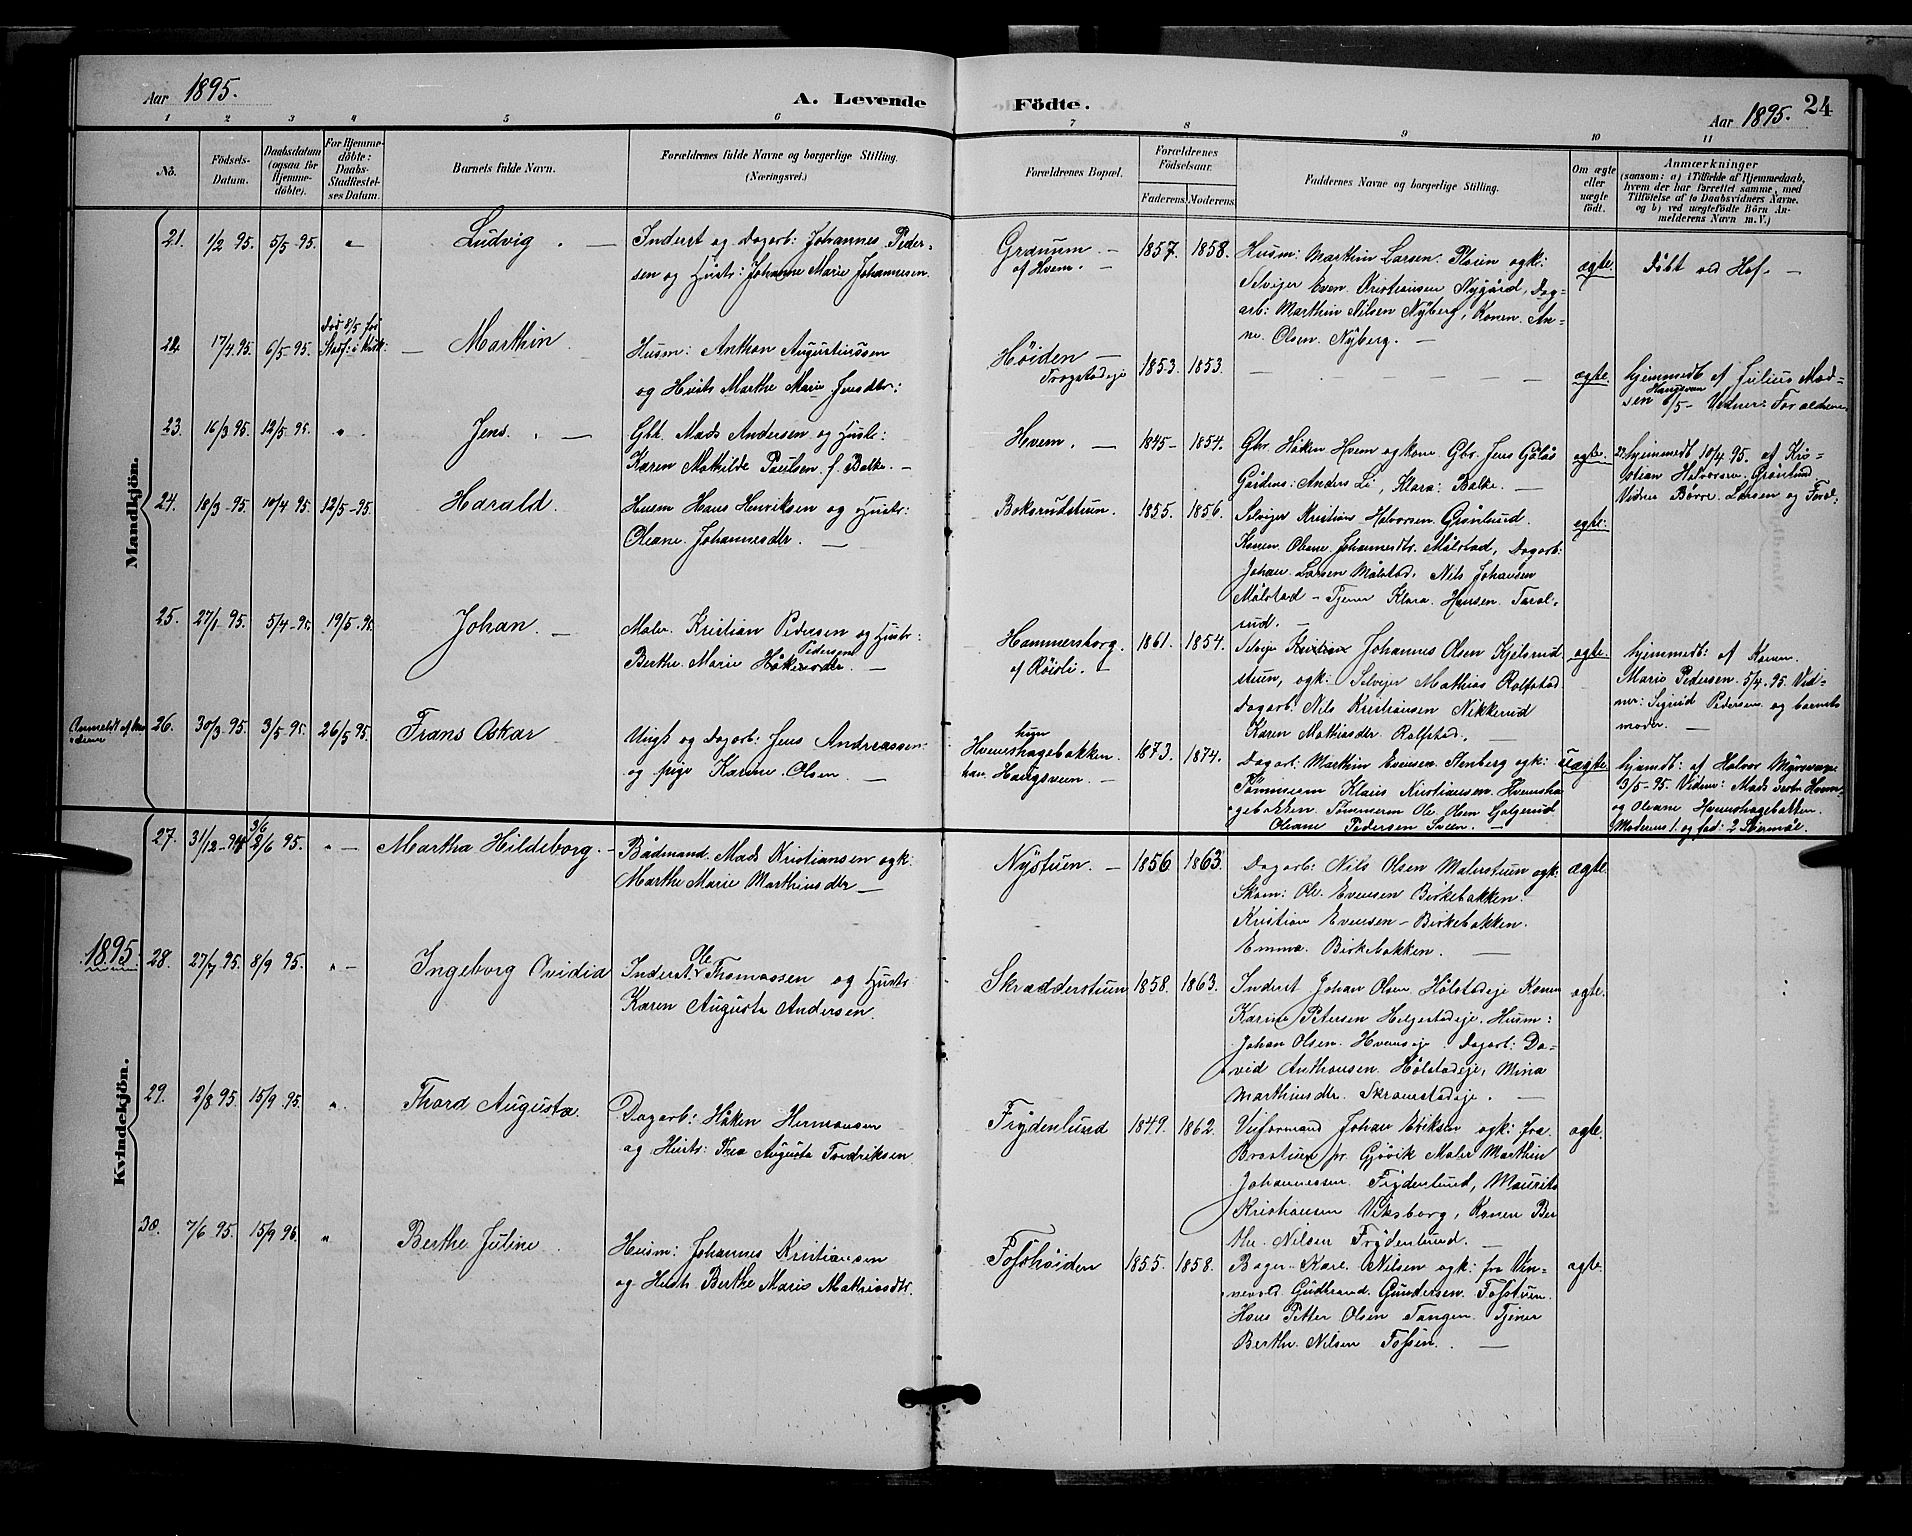 Aar 1895.
A. Levende Födte.
Aar 1895. 24
1 2 3 4 5 6 7 8 9 10 11
No.
Födsels-Datum.
Daabsdatum (ogsaa for Hjemmedöbte).
For Hjemmedöbte: Daabs-Stadfæstelses Datum.
Barnets fulde Navn.
Forældrenes fulde Navne og borgerlige Stilling.
(Næringsvei.)
Forældrenes Bopæl.
Forældrenes Födselsaar.
Faderens. Moderens.
Faddernes Navne og borgerlige Stilling.
Om ægte eller uægte födt.
Anmærkninger
(saasom: a) i Tilfælde af Hjemmedaab, hvem der har forrettet samme, med Tilföielse af to Daabsvidners Navne, og b) ved uægtefödte Börn Anmelderens Navn m. V.)
Mandkjön.
21. 1/2 95. 5/5 95. " Ludvig.
Inderst og Dagarb: Johannes Peder-
sen og Hustr: Johanne Marie Johannesen.
Granum
af Hvem.
1857. 1858.
Husm: Marthin Larsen Plorin ogk:
Selveier Even Kristiansen Nygård, Dag-
arb: Marthin Nilsen Nyberg, Konen An-
ne Olsen Nyberg.
ægte.
Döbt ved Hof.
22. 17/4 95. 6/5 95. död 8/5 för Stadf: i Kirk:
Marthin
Husm: Anthon Augustinssen
og Hustr Marthe Marie Jensdtr:
Höiden
Trogstadeje
1853. 1853.
ægte.
hjemmedt af Julius Mad-
sen Haugsveen 6/5 - Vidner: Forældrene
23. 16/3 95. 12/5 95. " Jens.
Gbr. Mads Andersen og Hustr:
Karen Mathilde Paulsen f. Balke.
Hvem.
1845 - 1854.
Gbr. Håken Hvem og kone. Gbr. Jens Gålås
Gårdens: Anders Li, Klara: Balke.
ægte.
24 hjemmedt 10/4 95. af Kri-
stian Halvorsen Grönlund
Vidner Börre Larsen og Foræl:
24. 18/3 95. 10/4 95. 12/5 95. Harald.
Husm Hans Henriksen og Hustr:
Oleane Johannesdtr.
Boksrudstuen.
1855. 1856.
Selveier Kristian Halvorsen Grönlund.
Konen Oleane Johannesdtr. Målstad, Dagarb:
Johan Larsen Målstad, Nils Johansen
Målstad - Tjener Klara Hansen Tarol-
rud.
ægte:
25. 27/1 95. 5/4 95. 19/5 95. Johan.
Maler Kristian Pedersen og Hustr:
Berthe Marie Håkensdtr. Pedersen
Hammersborg.
af Röisli.
1861. 1854.
Selveje Kristian Johannes Olsen Kjölsrud
stuen, ogk: Selvejer Mathias Rolfstad
Dagarb: Nils Kristiansen Nikkerud
Karen Mathiasdtr. Rolfstad.
ægte.
hjemmedt: af Konen
Marie Pedersen 5/4 95. Vid-
ner: Sigrid Pedersen og barnets
moder.
Anmeldt af
26. 30/3 95. 3/5 95. 26/5 95. Frans Oskar
Ungk og Dagarb: Jens Andreassen:
og pige Karine Olsen.
hun Hvemshagebakken
han Haugsveen
1873. 1874.
Dagarb: Marthin Evensen Stenberg ogk:
Tömmerm Klaus Kristiansen Hvemsha-
gebakken Tömmerm Ole Olsen Galgerud
Oleane Pedersen Sveen.
Uægte.
hjemdt: af Halvor Myrsveen
3/5 - 95. Vidner: Mads
og Oleane Hvemshagebakken.
Moderens 1. og fad: 2 Leiermål.
Kvindekjön.
1895.
27. 31/12 - 94 3/6 2/6 95. " Martha Hildeborg.
Bådmand Mads Kristiansen ogk:
Marthe Marie Marthinsdtr
Nystuen.
1856 1863.
Dagarb: Nils Olsen Malerstuen ogk:
Skom: Ole Evensen Birkebakken.
Kristian Evensen - Birkebakken.
Emma Birkebakken.
ægte.
28. 27/7 95. 8/9 95. " Ingeborg Ovidia
Inderst Ole Thomassen og Hustr
Karen Augusta Andersen.
Skrædderstuen
1858. 1863.
Inderst Johan Olsen Hölstadeje Konen
Karine Petersen Helgestadeje. Husm:
Johan Olsen Hvemseje. Dagarb: Da-
vid Anthonsen Hölstadeje, Mina
Marthinsdtr. Skramstadeje.
ægte.
29. 2/8 95. 15/9 95. " Thora Augusta
Dagarb: Håken Hermansen
og Hustr: Thea Augusta Fredriksen.
Frydenlund
1849. 1862.
Veiformand Johan Eriksen ogk: fra
Brostuen pr Gjövik Maler Marthin
Johannessen Frydenlund, Maurits
Kristiansen Viksborg, Konen Ber
the Nilsen Frydenlund.
ægte.
30. 7/6 95. 15/9 95. " Berthe Juline
Husm: Johannes Kristiansen
og Hustr Berthe Marie Mathiasdtr.
Fosshöiden
1855. 1858.
Bager Karl Nilsen ogk: fra Vin-
nevold Gudbrand Gundersen Fosstuen.
Hans Petter Olsen Tangen. Tjener
Berthe Nilsen Fossen.
ægte.